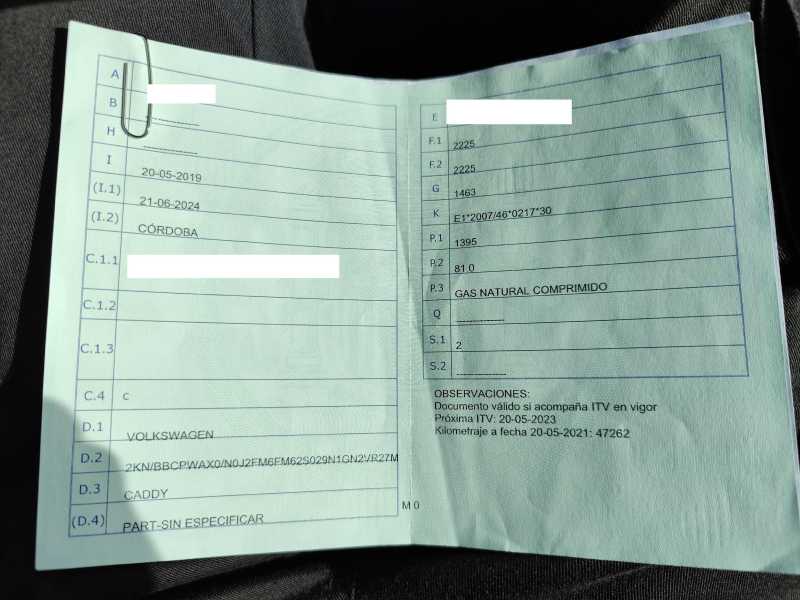 A
B
---------------
H
---------------
I
20-05-2019
(I.1)
21-06-2024
(I.2)
CÓRDOBA
C.1.1
C.1.2
C.1.3
C.4
C
D.1
VOLKSWAGEN
D.2
2KN/BBCPWAX0/N0J2FM6FM62S029N1GN2VR27M
D.3
CADDY
(D.4)
PART-SIN ESPECIFICAR
M 0
E
F.1
2225
F.2
2225
G
1463
K
E1*2007/46*0217*30
P.1
1395
P.2
81.0
P.3
GAS NATURAL COMPRIMIDO
Q
---------------
S.1
2
S.2
---------------
OBSERVACIONES:
Documento válido si acompaña ITV en vigor
Próxima ITV: 20-05-2023
Kilometraje a fecha 20-05-2021: 47262